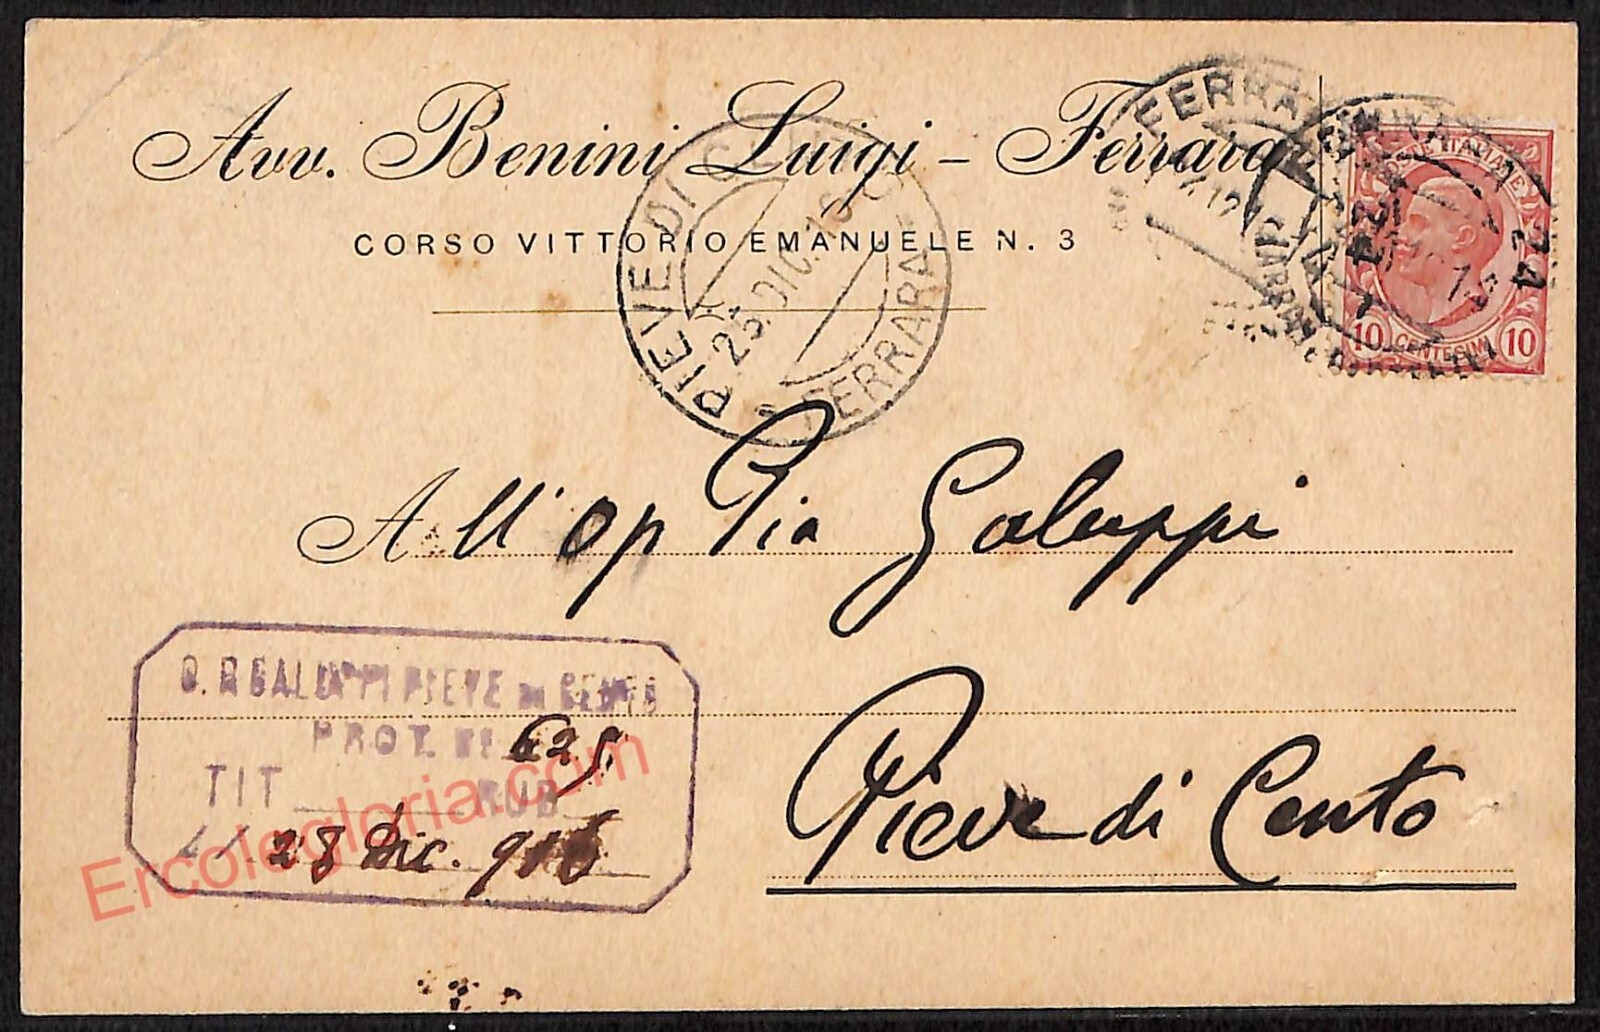 Avv. Benini Luigi - Ferrara
CORSO VITTORIO EMANUELE N. 3
PIEVE DI CENTO
FERRARA
FERRARA
POSTE ITALIANE
10 CENTESIMI 10
All'Op Pia Galuppi
Pieve di Cento
O. P. GALUPPI PIEVE DI CENTO
PROT. Nº 625
TIT RUB
28 Dic. 916
Ercolegloria.com